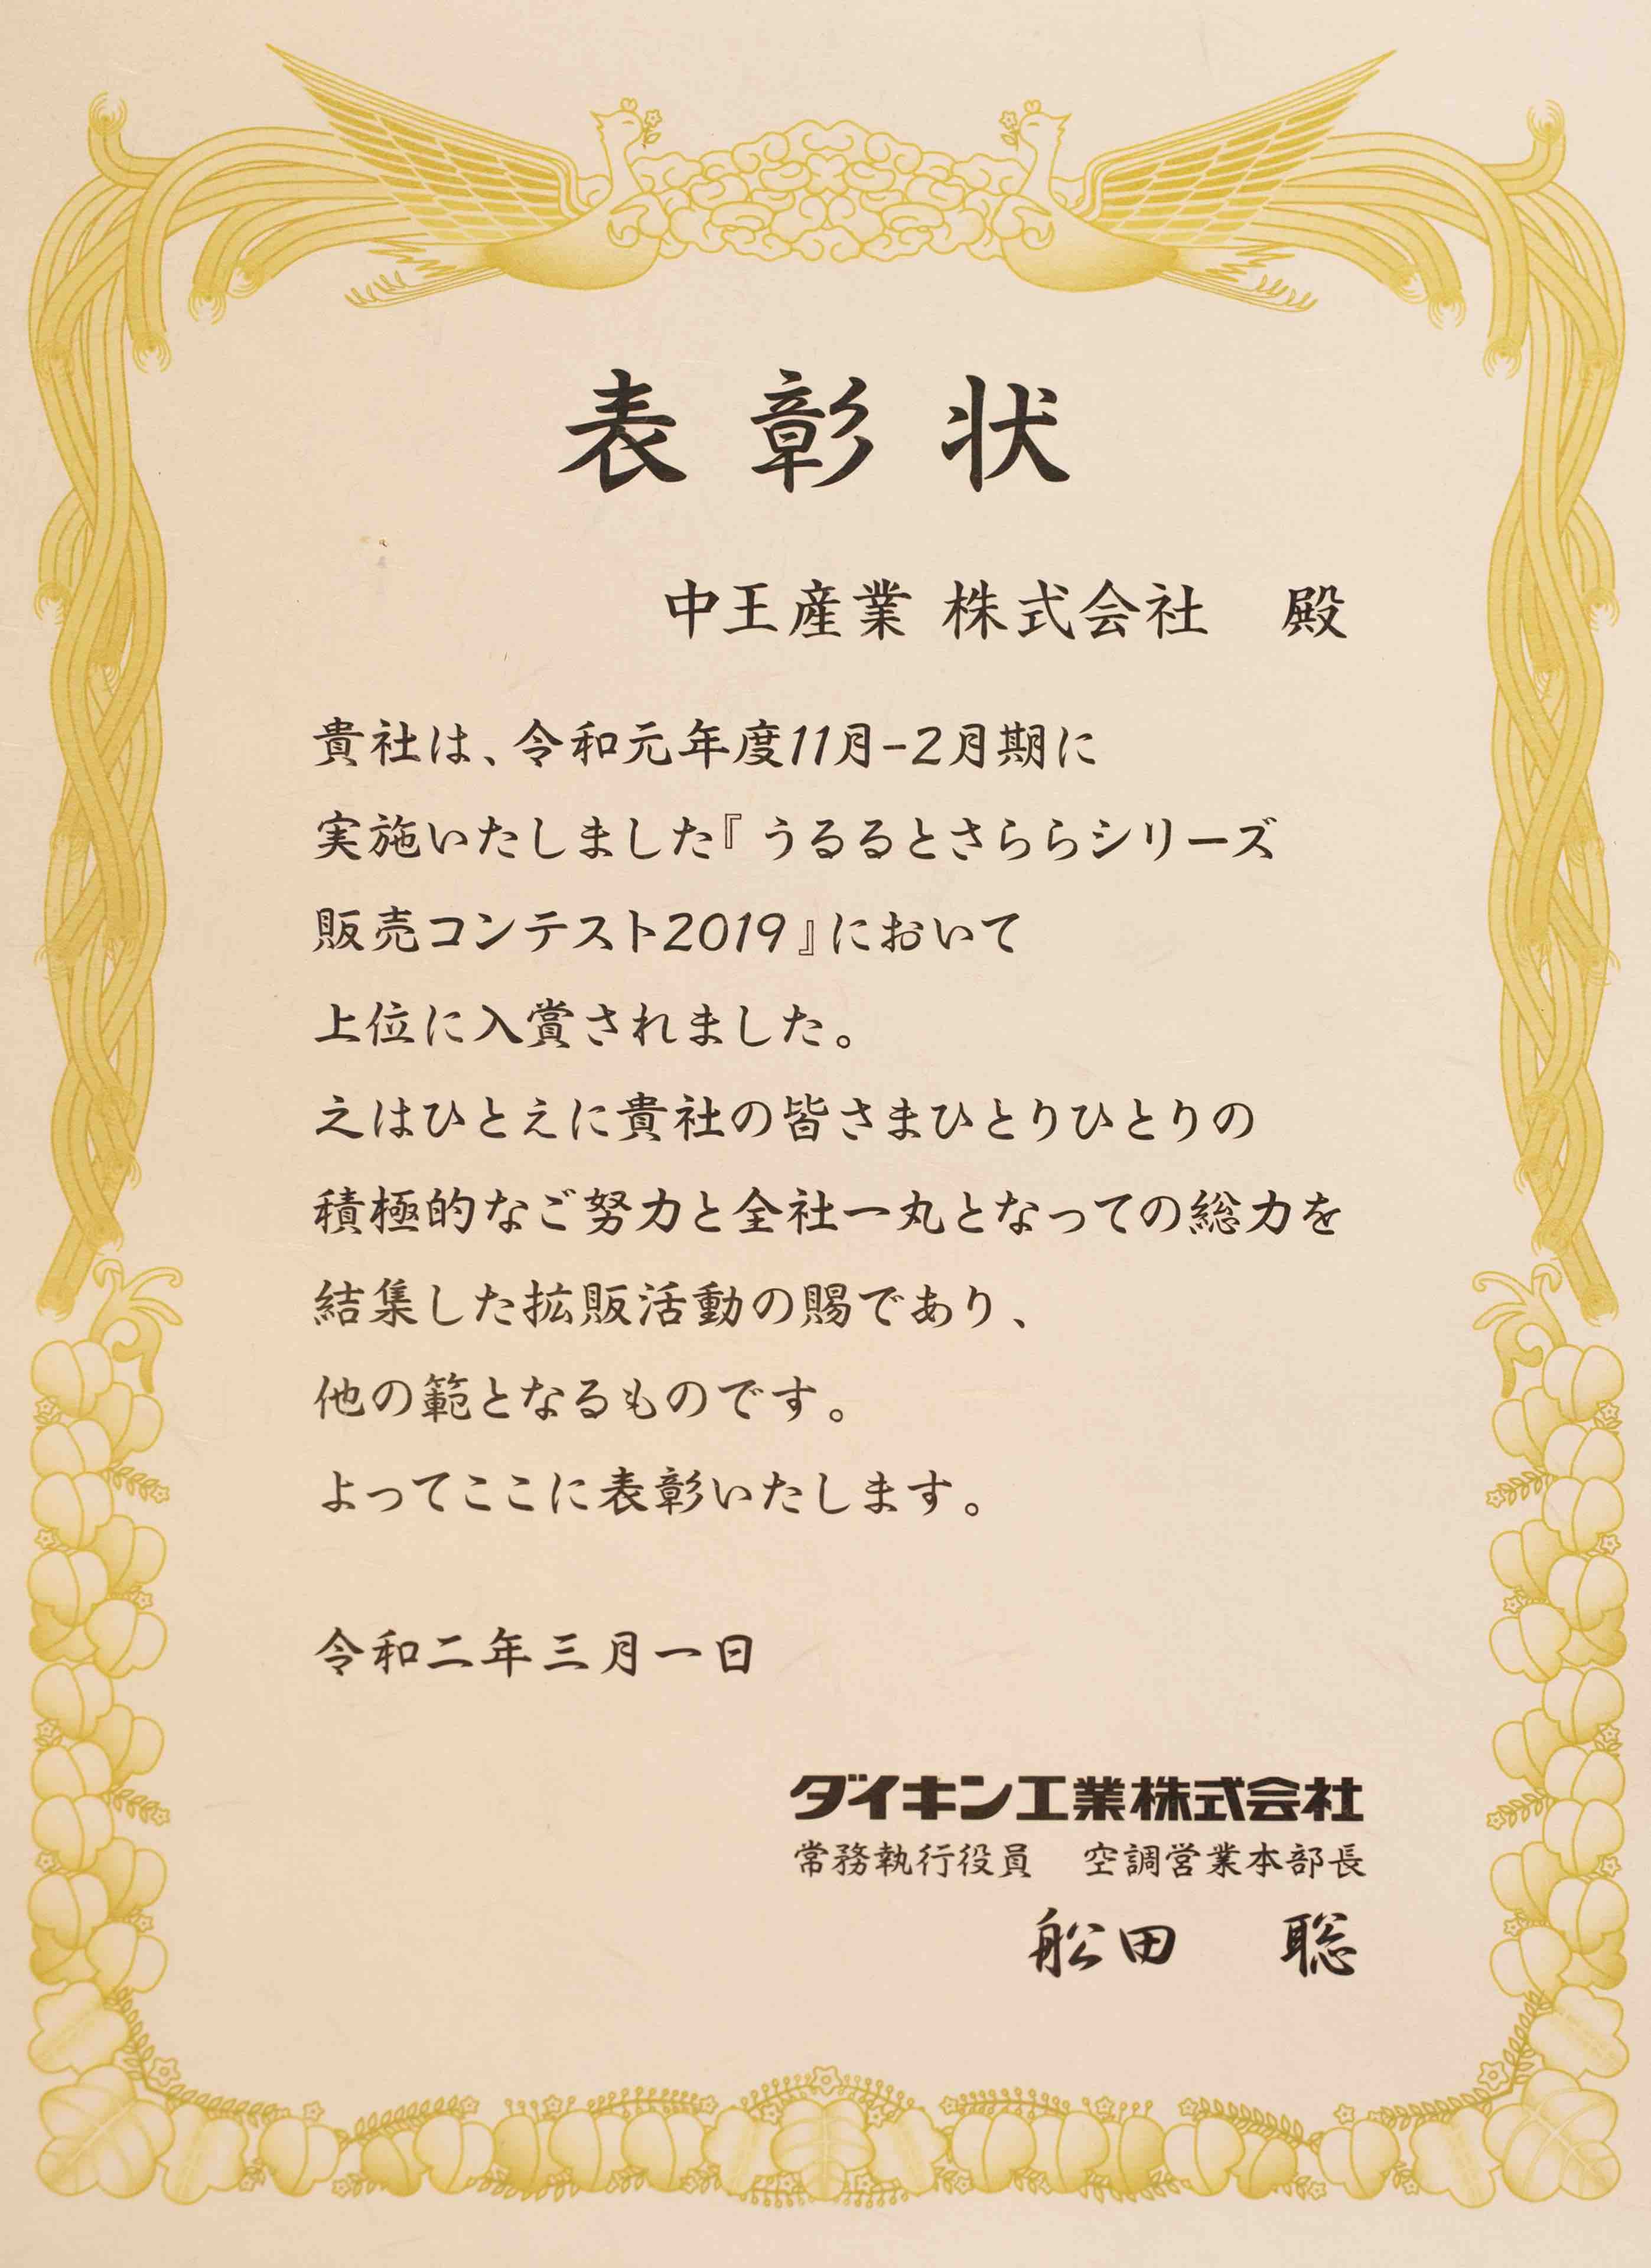 表彰状
中王産業 株式会社　殿
貴社は、令和元年度11月-2月期に
実施いたしました『うるるとさららシリーズ
販売コンテスト2019』において
上位に入賞されました。
之はひとえに貴社の皆さまひとりひとりの
積極的なご努力と全社一丸となっての総力を
結集した拡販活動の賜であり、
他の範となるものです。
よってここに表彰いたします。
令和二年三月一日
ダイキン工業株式会社
常務執行役員　空調営業本部長
舩田　聡